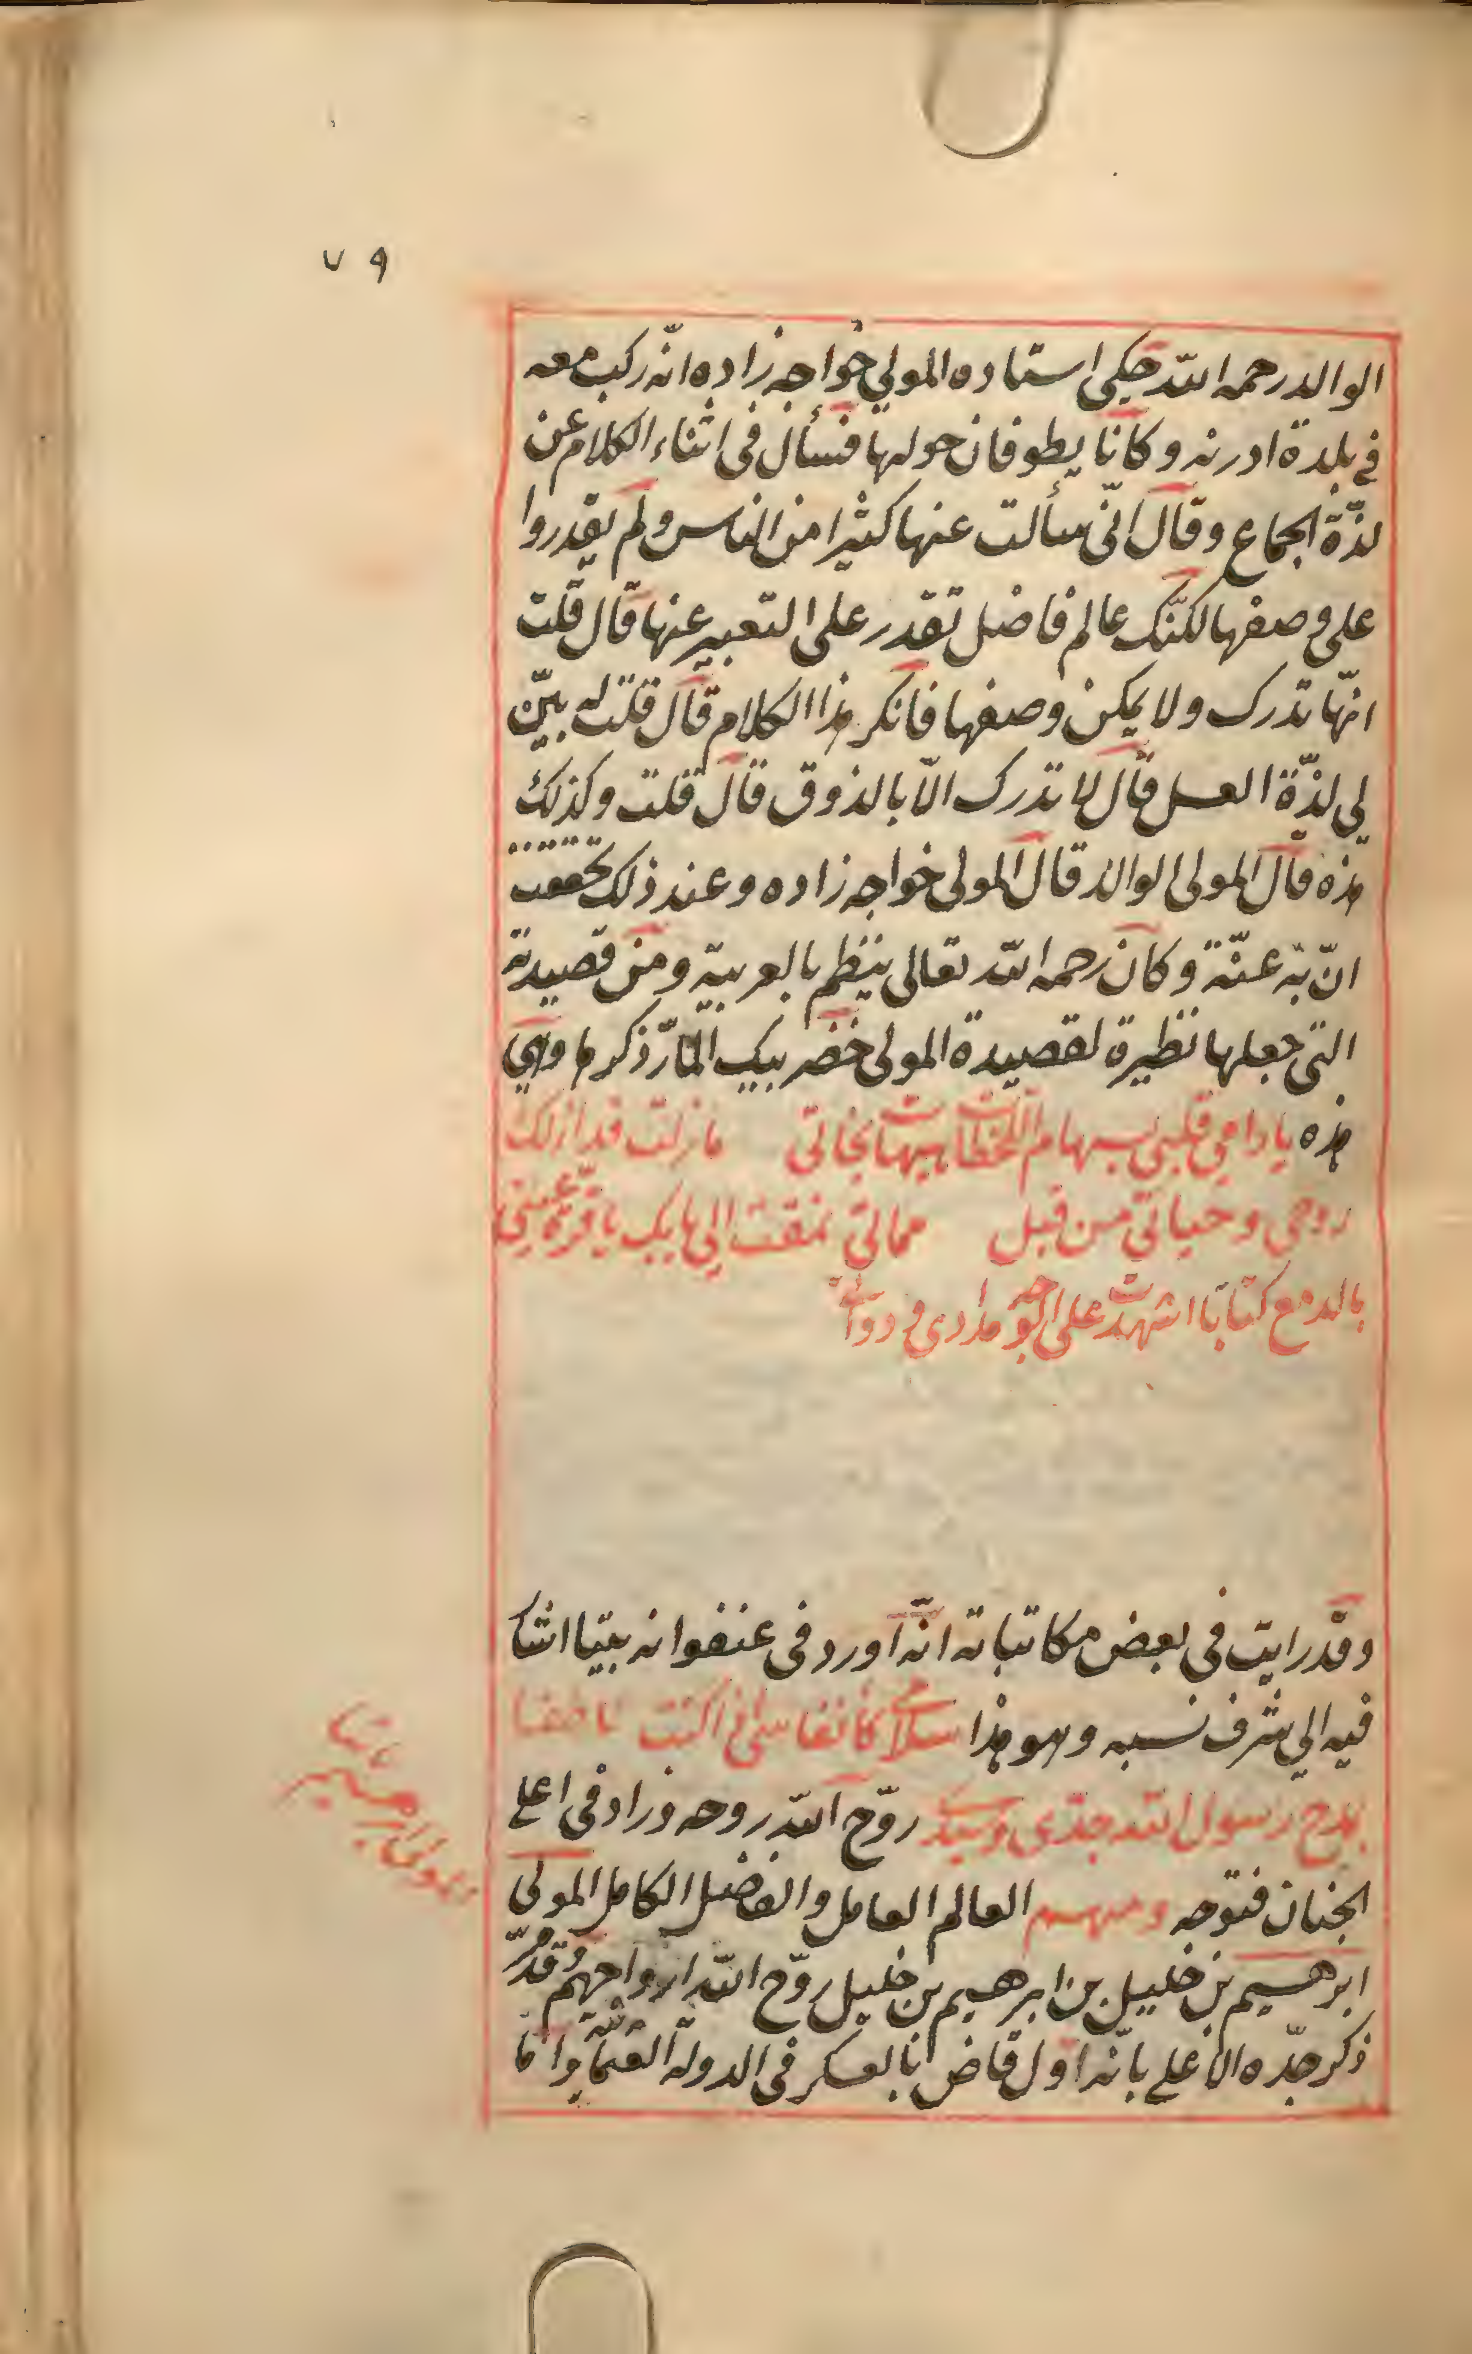 ٧٩
الوالد رحمه الله حكى استاده المولى خواجه زاده انّه ركب معه
في بلدة ادرنه وكانا يطوفان حولها فسأل فى اثناء الكلام عن
لذّة الجماع وقال انّى سألت عنها كثيرا من الناس ولم يقدروا
على وصفها لكنّك عالم فاضل تقدر على التعبير عنها قال قلت
انهّا تدرك ولا يمكن وصفها فانكر هذا الكلام قال قلت له بيّن
لي لذّة العسل قال لا تدرك الّا بالذوق قال قلت وكذلك
هذه قال المولى الوالد قال المولى خواجه زاده وعند ذلك تحققت
انّ به عنّة وكان رحمه الله تعالى ينظم بالعربية ومن قصيدته
التى جعلها نظيرة لقصيدة المولى خضر بيك المّار ذكرها وهي
هذه يا رامي قلبي بسهام اللحظات هيهات نجاتى ما زلت فداء لك
روحي وحياتي من قبل مماتي نمقت الى بابك يا قرة عينى
بالدمع كتابا اشهدت على الوجه مدادى و دواتى
وقد رايت فى بعض مكاتباته انّه اورد فى عنفوانه بيتا اشا
فيه الي شرف نسبه وهو هذا سلامى كانفاسى اذا كنت ناطقا
بمدح رسول الله جدّى وسيدى روّح الله روحه وزاد فى اعلى
الجنان فتوحه ومنهم العالم العامل والفاضل الكامل المولى
ابرهيم بن خليل بن ابرهيم بن خليل روّح الله ارواحهم قد مرّ
ذكر جدّه الاعلى بانّه اول قاض بالعسكر فى الدولة العثمانية واما
مولى ابرهيم پاشا